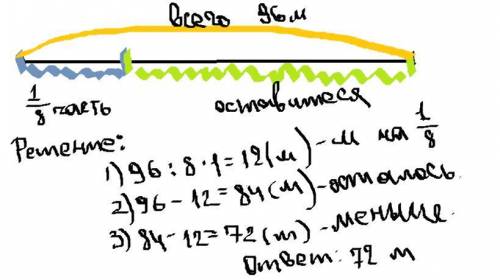 всего 96 м
1/8 часть
оставшиеся
Решение:
1) 96 : 8 · 1 = 12 (м) - м на 1/8
2) 96 - 12 = 84 (м) - осталось.
3) 84 - 12 = 72 (м) - меньше.
Ответ: 72 м